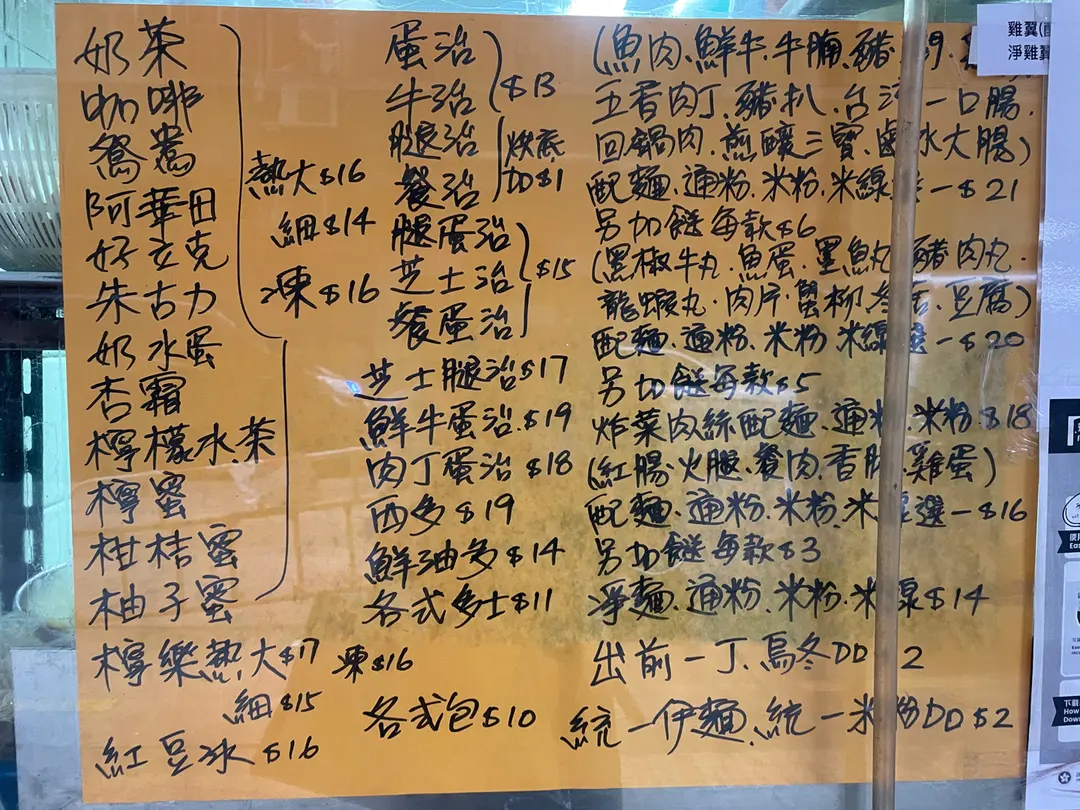 奶茶
咖啡
鴛鴦
阿華田
好立克
朱古力
奶水蛋
杏霜
檸檬水.茶
檸蜜
柑桔蜜
柚子蜜
熱大$16
細$14
凍$16
檸樂熱.大$17 凍$16
細$15
紅豆冰$16
蛋治
牛治
腿治
餐治
$13
烘底
DD$1
腿蛋治
芝士治
餐蛋治
$15
芝士腿治$17
鮮牛蛋治.$19
肉丁蛋治$18
西多$19
鮮油多$14
各式多士$11
各式包$10
(魚肉.鮮牛.牛腩.豬
五香肉丁.豬扒.台 一口腸.
回鍋肉.煎釀三寶.鹵水大腸)
配麵.通粉.米粉.米線 一$21
另加餸每款$6
(黑椒牛丸.魚蛋.墨魚丸 豬肉丸.
龍蝦丸.肉片.蟹柳.冬 .豆腐)
配麵.通粉.米粉 米線 一$20
另加餸每款$5
炸菜肉絲配麵.通 .米粉$18
(紅腸.火腿.餐肉.香 .雞蛋)
配麵.通粉.米粉.米 選一$16
另加餸每款$3
淨麵.通粉.米粉.米線$14
出前一丁.烏冬DD 2
統一伊麵.統一米粉DD$2
雞翼
淨雞翼